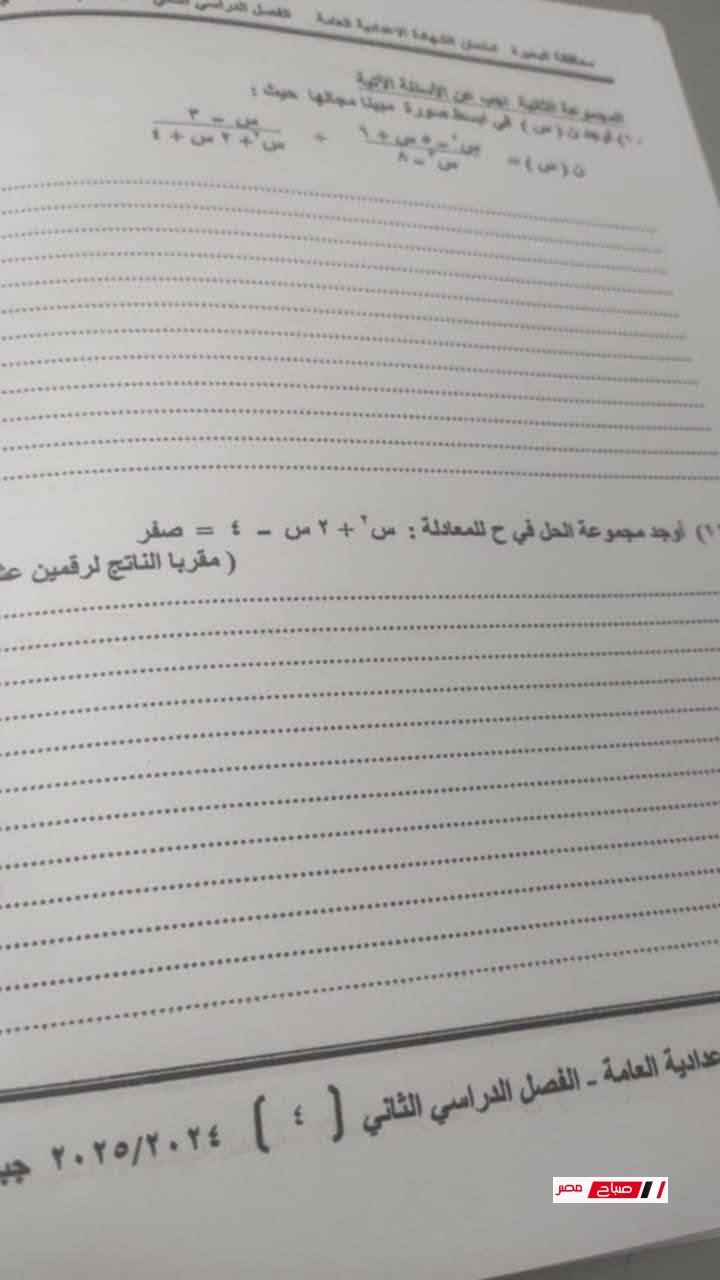 محافظة البحيرة امتحان الشهادة الإعدادية العامة الفصل الدراسي
المجموعة الثانية أجب عن الأسئلة الآتية
١٠) أوجد ن (س) في أبسط صورة مبينا مجالها حيث :
ن (س) = (س٢ – ٥ س + ٦) / (س٣ – ٨) ÷ (س – ٣) / (س٢ + ٢ س + ٤)
أوجد مجموعة الحل في ح للمعادلة : س٢ + ٢ س – ٤ = صفر
( مقربا الناتج لرقمين
عدادية العامة - الفصل الدراسي الثاني ( ٤ ) ٢٠٢٥/٢٠٢٤ جب
صباح مصر